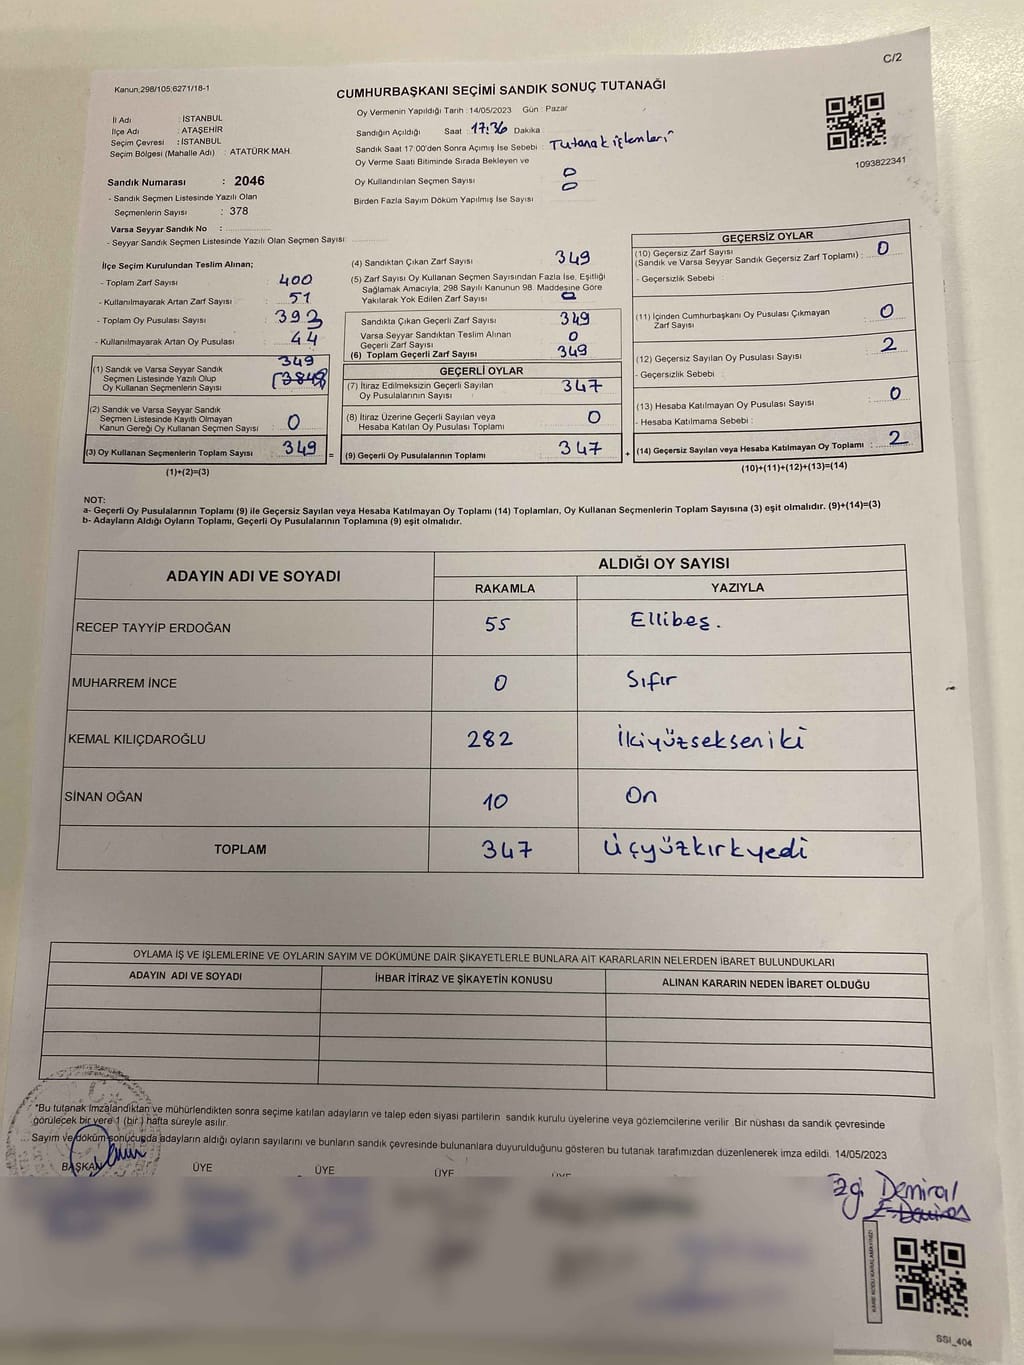 C/2
Kanun,298/105;6271/18-1
CUMHURBAŞKANI SEÇİMİ SANDIK SONUÇ TUTANAĞI
1093822341
İl Adı : İSTANBUL
İlçe Adı : ATAŞEHİR
Seçim Çevresi : İSTANBUL
Seçim Bölgesi (Mahalle Adı) : ATATÜRK MAH.
Sandık Numarası : 2046
- Sandık Seçmen Listesinde Yazılı Olan
Seçmenlerin Sayısı : 378
Varsa Seyyar Sandık No :
- Seyyar Sandık Seçmen Listesinde Yazılı Olan Seçmen Sayısı:
Oy Vermenin Yapıldığı Tarih : 14/05/2023 Gün : Pazar
Sandığın Açıldığı Saat : 17:36 Dakika :
Sandık Saat 17:00'den Sonra Açımış İse Sebebi : Tutanak işlemleri
Oy Verme Saati Bitiminde Sırada Bekleyen ve
Oy Kullandırılan Seçmen Sayısı : 0
Birden Fazla Sayım Döküm Yapılmış İse Sayısı : 0
İlçe Seçim Kurulundan Teslim Alınan;
- Toplam Zarf Sayısı : 400
- Kullanılmayarak Artan Zarf Sayısı : 51
- Toplam Oy Pusulası Sayısı : 393
- Kullanılmayarak Artan Oy Pusulası : 44
349
(1) Sandık ve Varsa Seyyar Sandık
Seçmen Listesinde Yazılı Olup
Oy Kullanan Seçmenlerin Sayısı
(2) Sandık ve Varsa Seyyar Sandık
Seçmen Listesinde Kayıtlı Olmayan
Kanun Gereği Oy Kullanan Seçmen Sayısı : 0
(3) Oy Kullanan Seçmenlerin Toplam Sayısı : 349 =
(1)+(2)=(3)
(4) Sandıktan Çıkan Zarf Sayısı : 349
(5) Zarf Sayısı Oy Kullanan Seçmen Sayısından Fazla İse, Eşitliği
Sağlamak Amacıyla, 298 Sayılı Kanunun 98. Maddesine Göre
Yakılarak Yok Edilen Zarf Sayısı : 0
Sandıkta Çıkan Geçerli Zarf Sayısı : 349
Varsa Seyyar Sandıktan Teslim Alınan
Geçerli Zarf Sayısı : 0
(6) Toplam Geçerli Zarf Sayısı : 349
GEÇERLİ OYLAR
(7) İtiraz Edilmeksizin Geçerli Sayılan
Oy Pusulalarının Sayısı : 347
(8) İtiraz Üzerine Geçerli Sayılan veya
Hesaba Katılan Oy Pusulası Toplamı : 0
(9) Geçerli Oy Pusulalarının Toplamı : 347 +
GEÇERSİZ OYLAR
(10) Geçersiz Zarf Sayısı
(Sandık ve Varsa Seyyar Sandık Geçersiz Zarf Toplamı) : 0
- Geçersizlik Sebebi :
(11) İçinden Cumhurbaşkanı Oy Pusulası Çıkmayan
Zarf Sayısı : 0
(12) Geçersiz Sayılan Oy Pusulası Sayısı : 2
- Geçersizlik Sebebi :
(13) Hesaba Katılmayan Oy Pusulası Sayısı : 0
- Hesaba Katılmama Sebebi :
(14) Geçersiz Sayılan veya Hesaba Katılmayan Oy Toplamı : 2
(10)+(11)+(12)+(13)=(14)
NOT:
a- Geçerli Oy Pusulalarının Toplamı (9) ile Geçersiz Sayılan veya Hesaba Katılmayan Oy Toplamı (14) Toplamları, Oy Kullanan Seçmenlerin Toplam Sayısına (3) eşit olmalıdır. (9)+(14)=(3)
b- Adayların Aldığı Oyların Toplamı, Geçerli Oy Pusulalarının Toplamına (9) eşit olmalıdır.
ADAYIN ADI VE SOYADI ALDIĞI OY SAYISI
RAKAMLA YAZIYLA
RECEP TAYYİP ERDOĞAN 55 Ellibeş.
MUHARREM İNCE 0 Sıfır
KEMAL KILIÇDAROĞLU 282 İkiyüzsekseniki
SİNAN OĞAN 10 On
TOPLAM 347 Üçyüzkırkyedi
OYLAMA İŞ VE İŞLEMLERİNE VE OYLARIN SAYIM VE DÖKÜMÜNE DAİR ŞİKAYETLERLE BUNLARA AİT KARARLARIN NELERDEN İBARET BULUNDUKLARI
ADAYIN ADI VE SOYADI İHBAR İTİRAZ VE ŞİKAYETİN KONUSU ALINAN KARARIN NEDEN İBARET OLDUĞU
*Bu tutanak imzalandıktan ve mühürlendikten sonra seçime katılan adayların ve talep eden siyasi partilerin sandık kurulu üyelerine veya gözlemcilerine verilir .Bir nüshası da sandık çevresinde
görülecek bir yere 1 (bir ) hafta süreyle asılır.
Sayım ve döküm sonucunda adayların aldığı oyların sayılarını ve bunların sandık çevresinde bulunanlara duyurulduğunu gösteren bu tutanak tarafımızdan düzenlenerek imza edildi. 14/05/2023
BAŞKAN ÜYE ÜYE ÜYE ÜYE
Ezgi Demiral
SSI_404